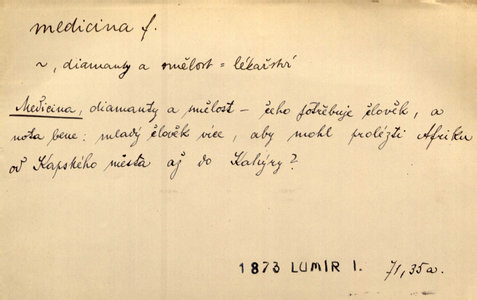 medicina f.
~, diamanty a smělost = lékařství
Medicina, diamanty a smělost – čeho potřebuje člověk, a
nota bene: mladý člověk více, aby mohl prolézti Afriku
od Kapského města až do Kahýry?
1873 LUMÍR I. 71,35a.